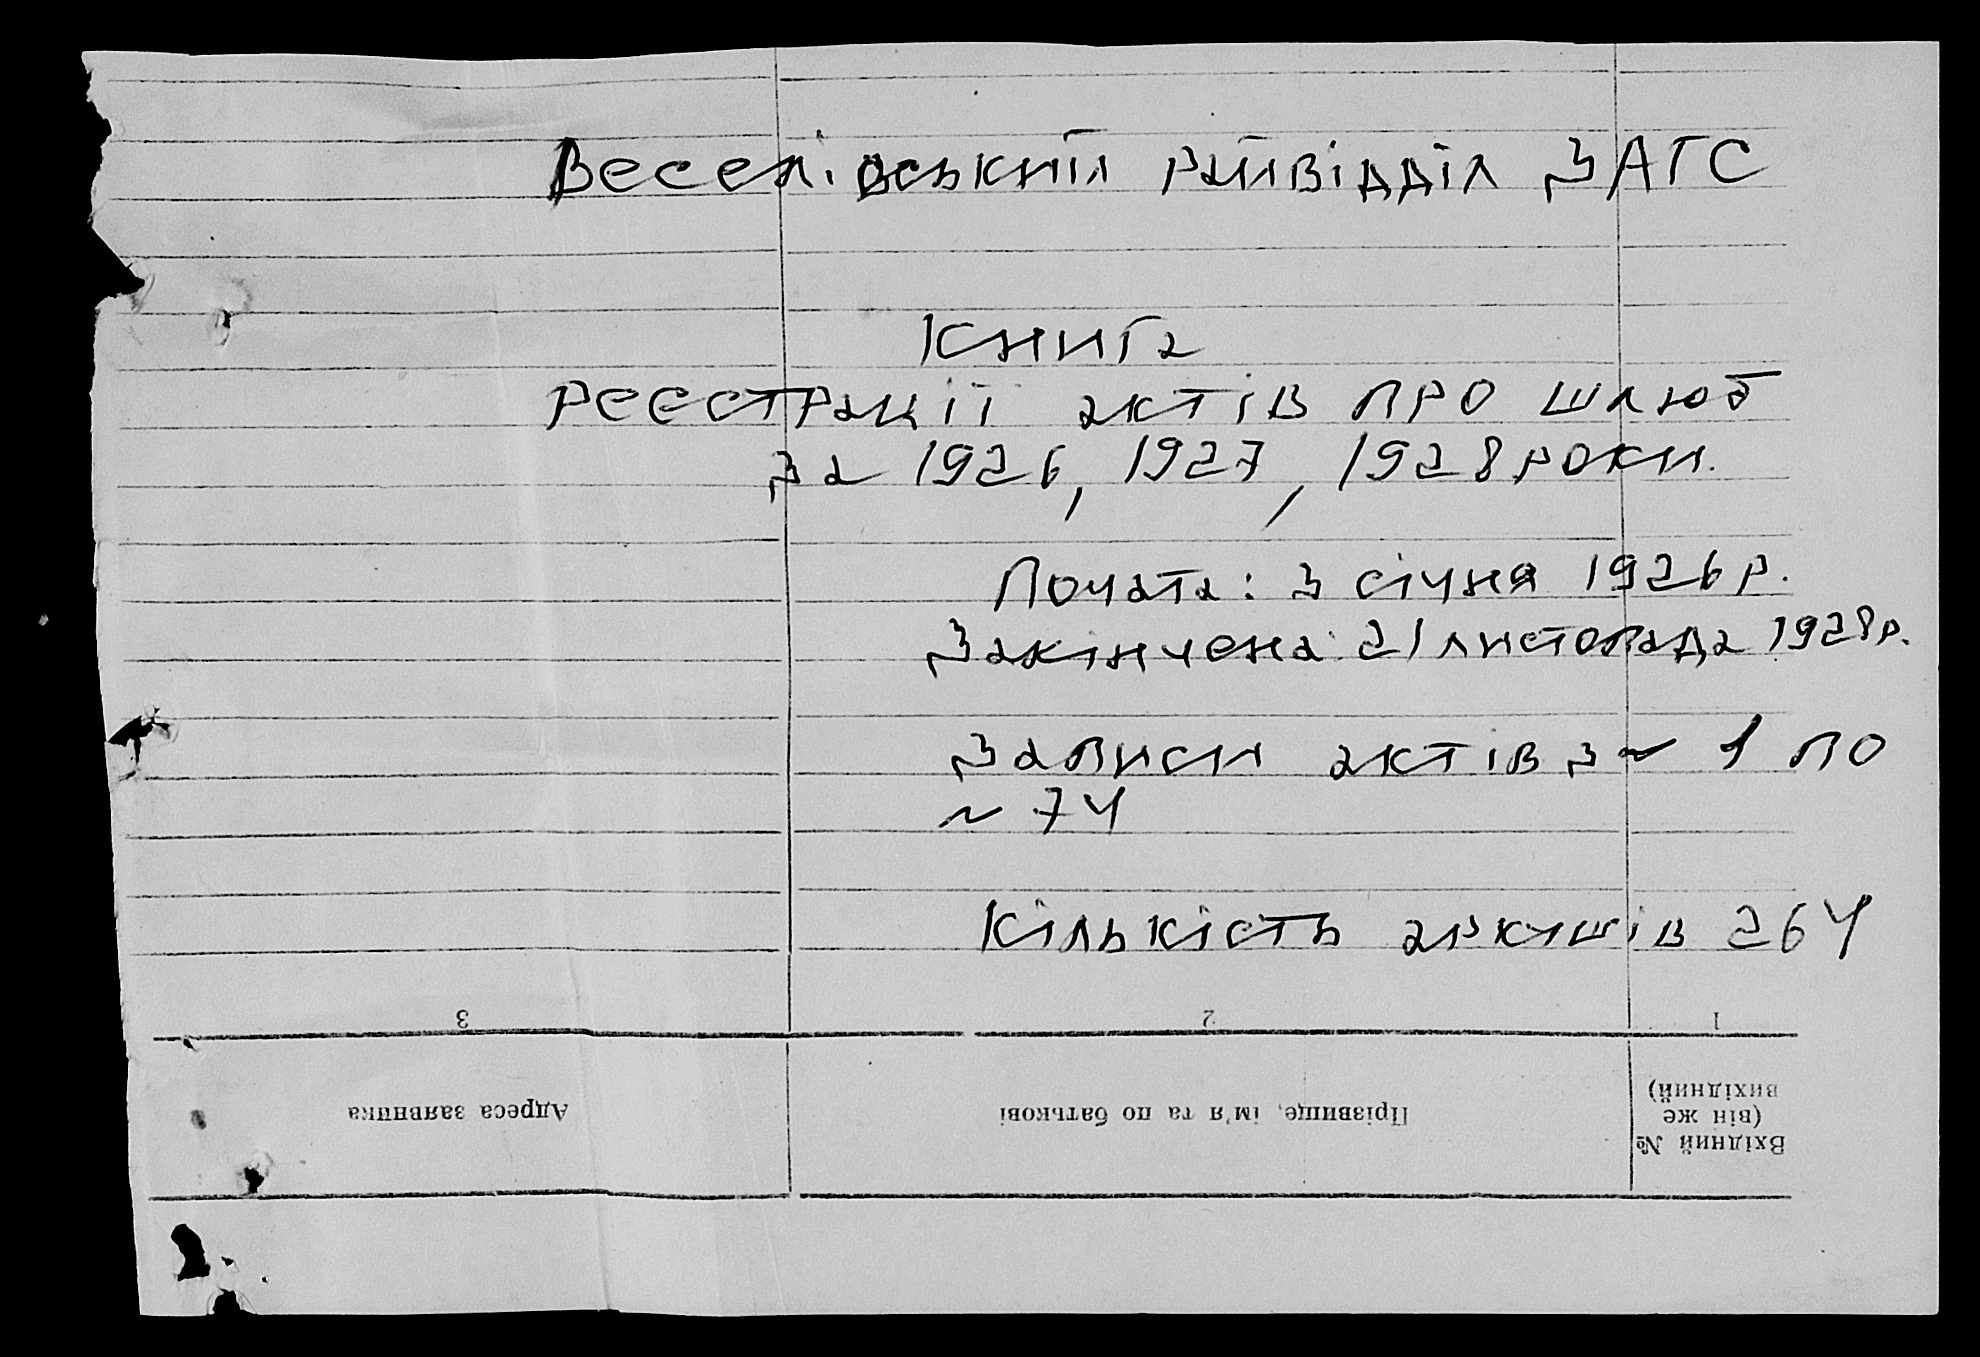 Веселівський райвідділ ЗАГС
Книга
реєстрації актів про шлюб
за 1926, 1927, 1928 роки.
Почата: 3 січня 1926 р.
Закінчена: 21 листопада 1928 р.
Записи актів з ~ 1 по
~ 74
Кількість аркушів 264
1 2 3
Вхідний №
(він же
вихідний)
Прізвище, ім'я та по батькові
Адреса заявника